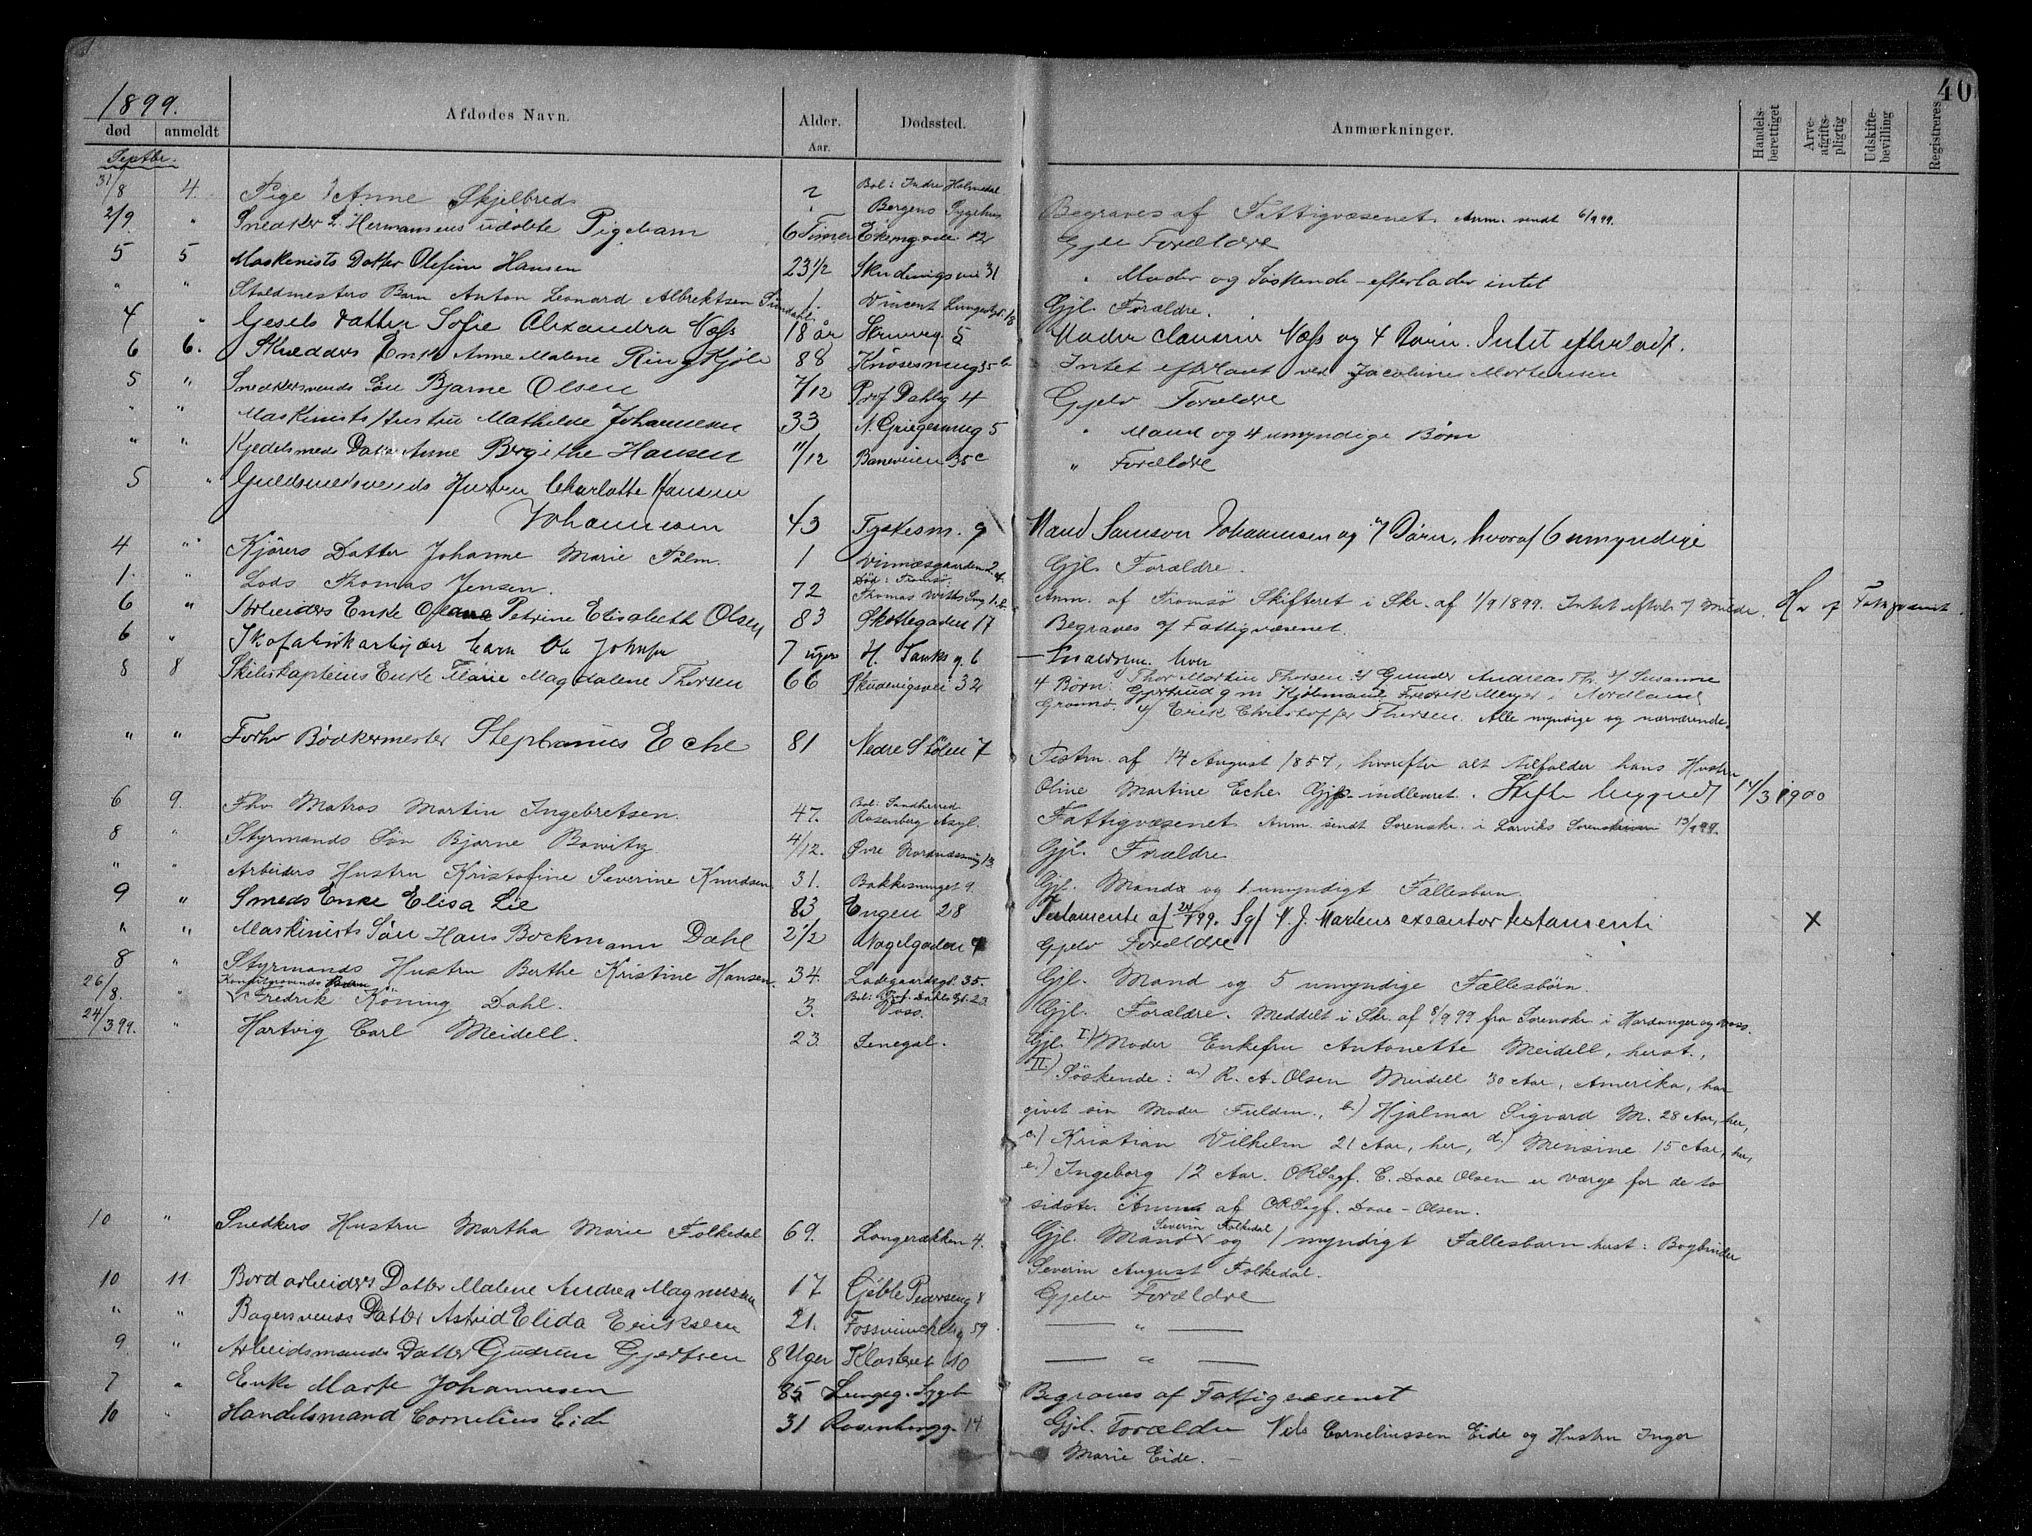 40
1899.
død anmeldt Afdødes Navn. Alder. Aar. Dødssted. Anmærkninger. Handels-berettiget Arve-afgifts-pligtig Udskifte-bevilling Registreres
Septbr.
31/8 4. Pige Anne Skjelbred 2 Bol: Indre Holmedal Bergens Sygehus Begraves af Fattigvæsenet. Anm. sendt 6/9 99.
2/9. " Snedker L. Hermansens udøbte Pigebarn 6 Timer Gjele Forældre
5 5 Maskenists Datter Olefine Hansen 23 1/2 Skudevigsvei 31 " Moder og Søskende - efterlader intet
" " Staldmesters Barn Anton Leonard Albrektsen Sundahl 1. Vincent Lungesgd. 18 Gjl. Forældre.
4 " Gesels Datter Sofie Alexandra Næss 18 år Skrueveg. 5 Moder Næss og 4 Børn. Intet efterladt.
6 6. Skrædders Enke Anne Malene Ring Kjøle 88 Knøsesmug 35 b Intet efterladt ved Jacobine Mortensen
5 " Snedkersvends Søn Bjarne Olsen 7/12 Prof Dahlsg 4 Gjelv Forældre
" " Maskinists Hustru Mathilde Johannesen 33 N. Griegesmug 5 " Mand og 4 umyndige Børn
" " Kjedelsmeds Datter Anne Bergithe Hansen 11/12 Baneveien 35c " Forældre
5 " Guldsmedsvends Hustru Charlotte Hansen
Johannesen 43 Tyskesm. 9 Mand Samson Johannesen og 7 Børn, hvoraf 6 umyndige
4 " Kjørers Datter Johanne Marie Palm. 1 Vinnæsgaarden 2 Gjl. Forældre.
1. " Lods Thomas Jensen. 72 Død: Tromsø. Anm. af Tromsø Skifteret i Skr. af 1/9 1899. Intet efterl.
6 " Arbeiders Enke Petrine Elisabeth Olsen 83 Skottegaden 17 Begraves af Fattigvæsenet.
6 " Skofabrikarbejder barn Ole Johnsen 7 uger H. Tanksg. 6 — Forældrene. hver
8 8 Skibskapteins Enke Marie Magdalene Thorsen 66 Skudevigsvei 32 4 Børn: Thor Martin Thorsen. Gunder Andreas Th. Susanne
Gjertrud g m Kjøbmand Fredrik Meyer i Nordland
Erik Christoffer Thorsen. Alle myndige og nærværende.
" " Forhv Bødkermester Stephanus Eche 81 Nedre Stølen 7
Testm. af 14 August 1857, hvorefter alt tilfalder hans Hustru
Oline Martine Eche. Gjp. indleveret. 14/3 1900
6 9. Fhv. Matros Martin Ingebretsen. 47. Bol: Sandherred Rosenberg Asyl. Fattigvæsenet. Anm. sendt Sorenskr. i Larviks Sorenskriveri 13/9 99.
8 " Styrmands Søn Bjarne Bowitz 4/12. Øvre Nordnæsmug 13 Gjl. Forældre
" " Arbeiders Hustru Kristofine Severine Knudsen 31. Bakkesmuget 9. Gjl. Mand og 1 umyndigt Fællesbarn.
9 " Smeds Enke Elisa Lie 83 Engen 28 Testamente af 24/ 99. Sgf N. J. Martens executor testamenti X
" " Maskinists Søn Hans Bockmann Dahl 2 1/2 Nagelgaden Gjelv Forældre
8 " Styrmands Hustru Berthe Kristine Hansen. 34. Ladegaardsgd. 35. Gjl. Mand og 5 umyndige Fællesbørn.
26/8. " Fredrik Køning Dahl. 3. Bol: Prof. Dahls Gd. 23 Voss. Gjl. Forældre. Meddelt i Skr. af 8/9 99 fra Sorenskr. i Hardanger og Voss.
24/3 99. " Hartvig Carl Meidell. 23. Senegal. Gjl. I.) Moder Enkefru Antonette Meidell, herst.,
II.) Søskende: a.) R. A. Olsen Meidell 30 Aar, Amerika, har
givet sin Moder Fuldm., b.) Hjalmar Sigvard M. 28 Aar, her,
c.) Kristian Vilhelm 21 Aar, her, d.) Mensine 15 Aar, her,
e.) Ingeborg 12 Aar. ORSagf. E. Daae Olsen er værge for de to
sidste. Anm. af ORSagf. Daae-Olsen.
10 " Snedkers Hustru Martha Marie Folkedal 69. Langerækken 4. Gjl. Mand Severin Folkedal og 1 myndigt Fællesbarn herst: Bogbinder
Severin August Folkedal.
10 11 Bordarbeiders Datter Malene Andrea Magnussen 17 Gøble Pedersensg 8 Gjelv Forældre
" " Bagersvends Datter Astrid Elida Eriksen 21. 59 — " —
9 " Arbeidsmands Datter Gudrun Gjertsen 8 Uger Klosteret 10 — " —
7 " Enke Marte Johannesen 85 Lungeg. Sygeh Begraves af Fattigvæsenet
10 " Handelsmand Cornelius Eide 31 Rosenbergg. 14 Gjl. Forældre Nils Corneliussen Eide og Hustru Inger
Marie Eide.